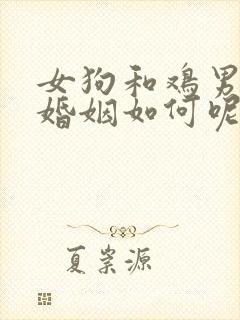 女狗和鸡男
婚姻如何呢
夏崇源